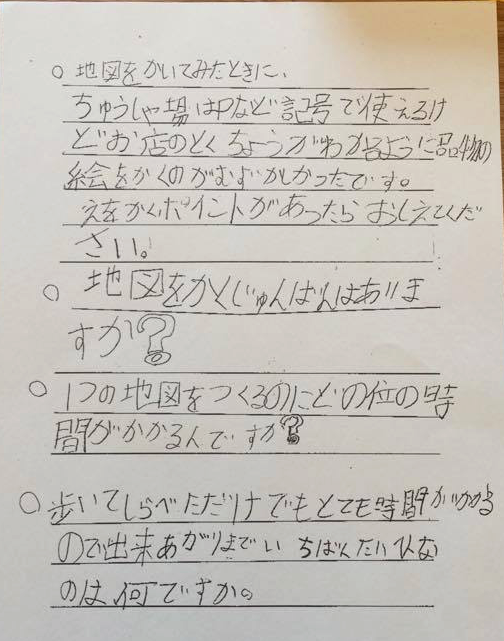 ○ 地図をかいてみたときに、
ちゅうしゃ場はPなど記号で使えるけ
どお店のとくちょうがわかるように品物の
絵をかくのがむずかしかったです。
えをかくポイントがあったらおしえてくだ
さい。
○ 地図をかくじゅんばんはありま
すか?
○ 1つの地図をつくるのにどの位の時
間がかかるんですか?
○ 歩いてしらべただけでもとても時間がかかる
ので出来あがりまでいちばんたいひな
のは何ですか。